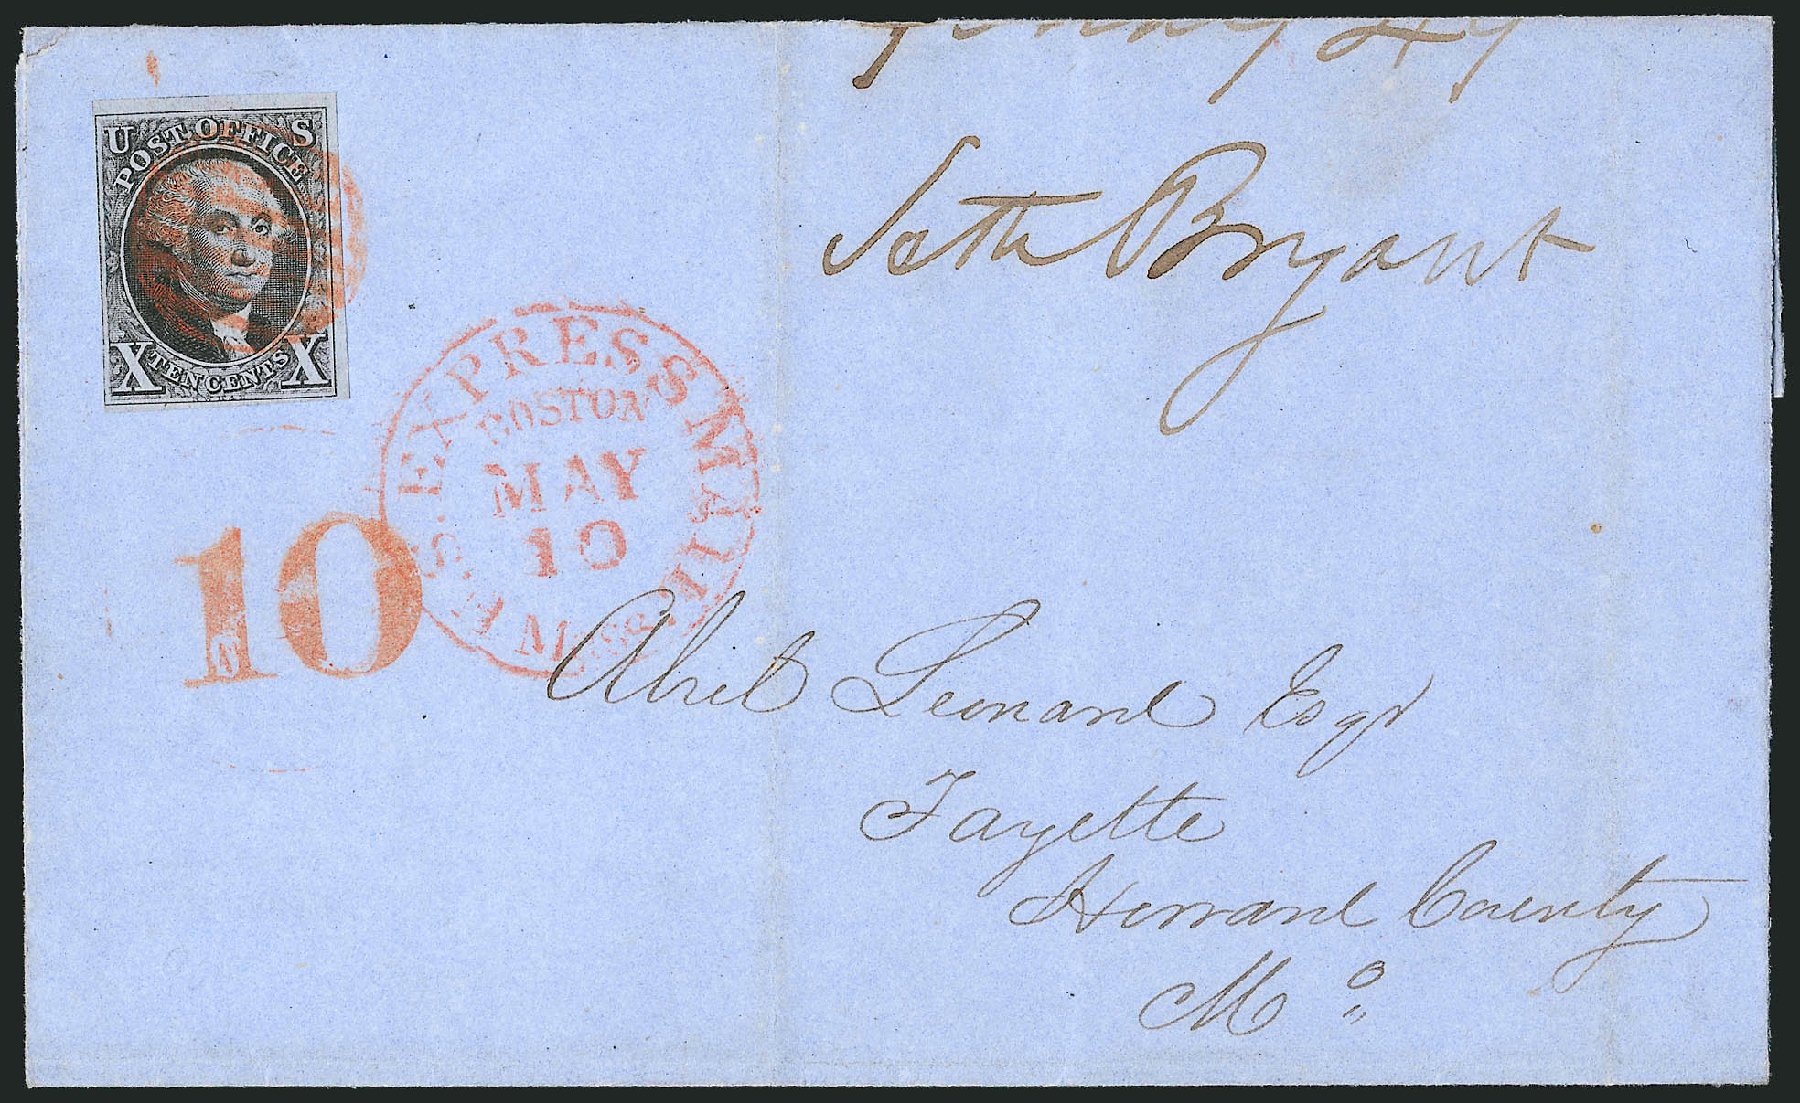 U S
POST OFFICE
X TEN CENTS X
Seth Bryant
U.S. EXPRESS MAIL
BOSTON
MAY
10
MASS.
10
Abiel Leonard Esqr
Fayette
Howard County
Mo